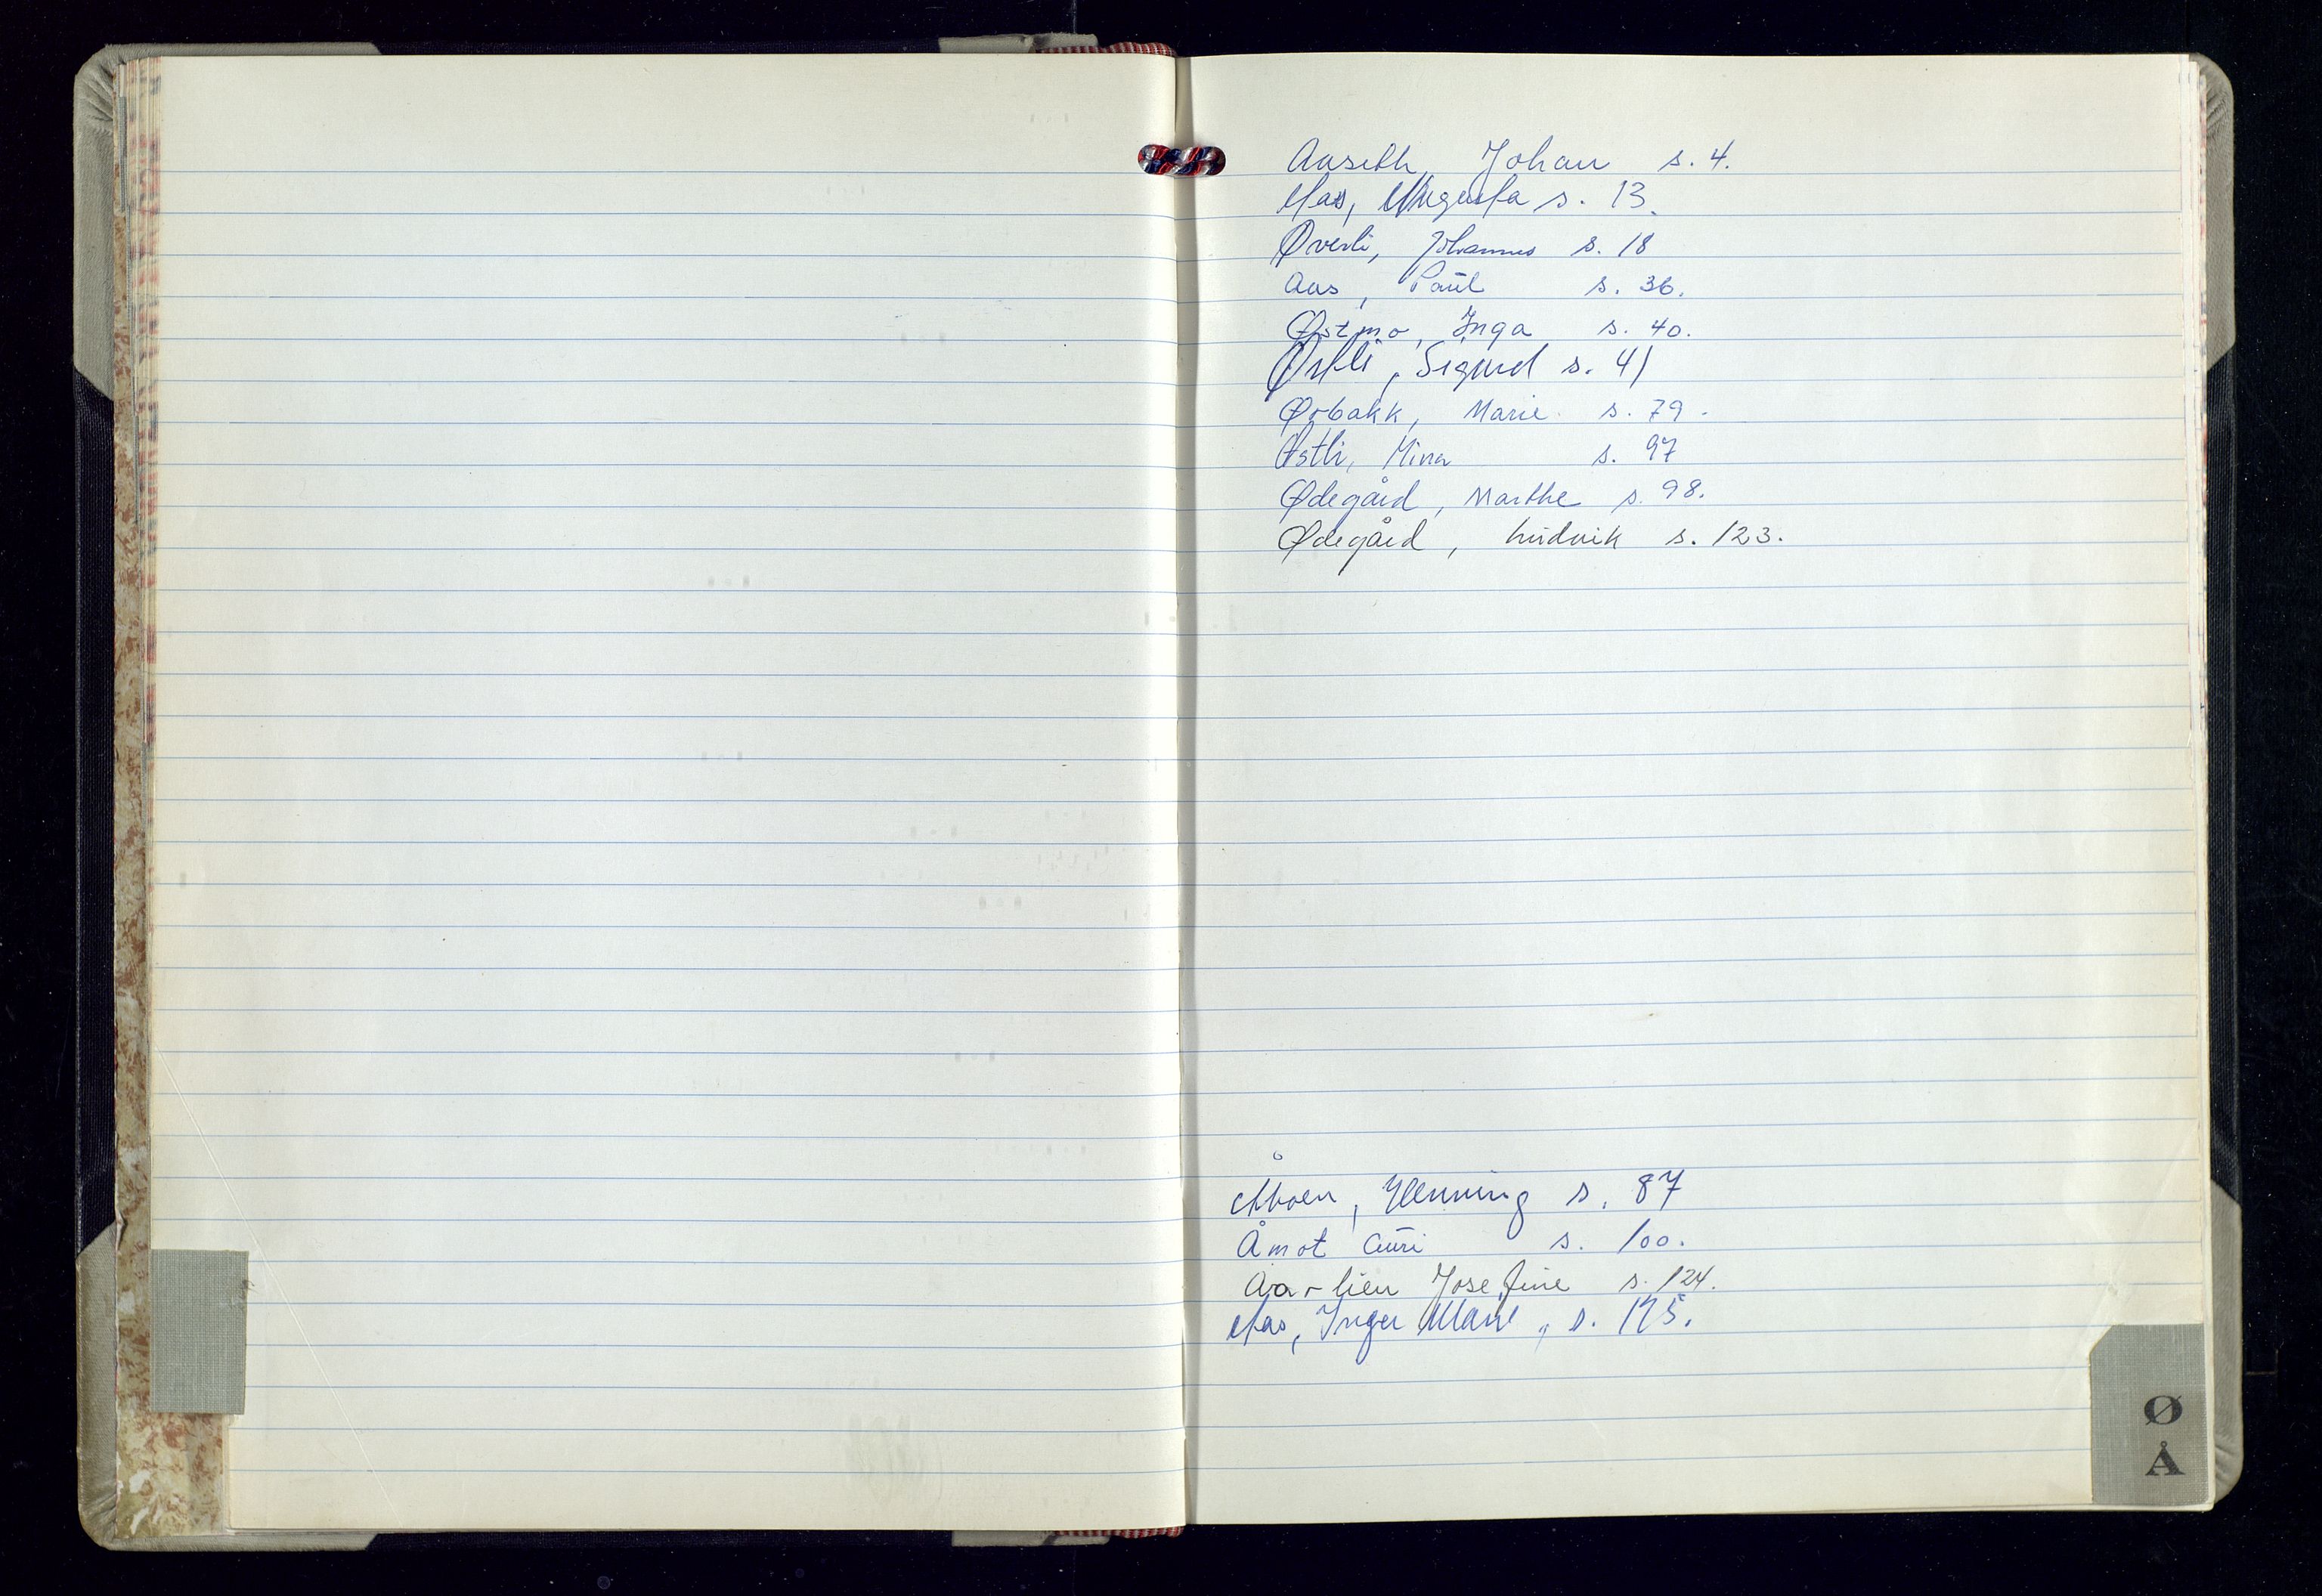 Aaseth, Johan s. 4.
Aas, Augusta s. 13.
Øverli, Johannes s. 18
Aas, Paul s. 36.
Østmo, Inga s. 40.
Østli, Sigurd s. 41
Ørbakk, Marie s. 79.
Østli, Mina s. 97
Ødegård, Marthe s. 98.
Ødegård, Ludvik s. 123.
Åmoen, Henning s. 87
Åmot Guri s. 100.
Aarlien Josefine s. 124.
Aas, Inger Marie, s. 125.
Ø
Å